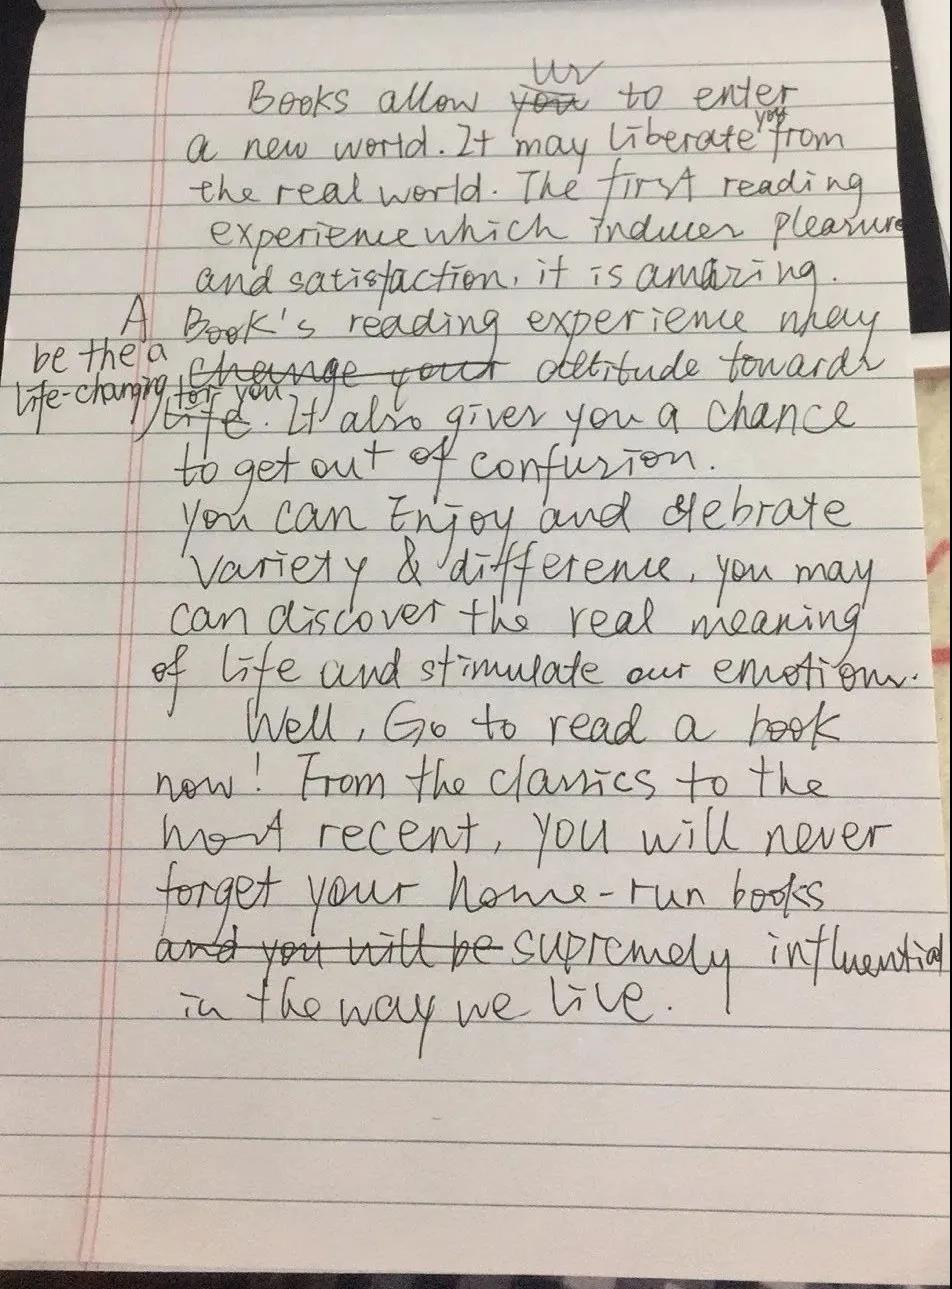 Books allow you us to enter
a new world. It may liberate you from
the real world. The first reading
experience which induces pleasure
and satisfaction, it is amazing.
A Book's reading experience may
be the a change your attitude towards
life-changing for you life. It also gives you a chance
to get out of confusion.
you can Enjoy and clebrate
variety & difference, you may
can discover the real meaning
of life and stimulate our emotions.
Well, Go to read a book
now! From the classics to the
most recent, you will never
forget your home-run books
and you will be supremely influential
in the way we live.